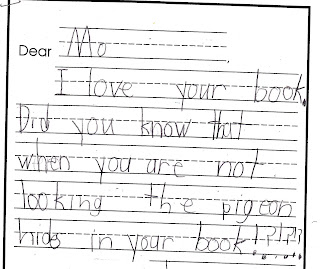 Dear Mo
I love your book.
Did you know that
when you are not
looking the pigeon
hids in your book!?!?!?